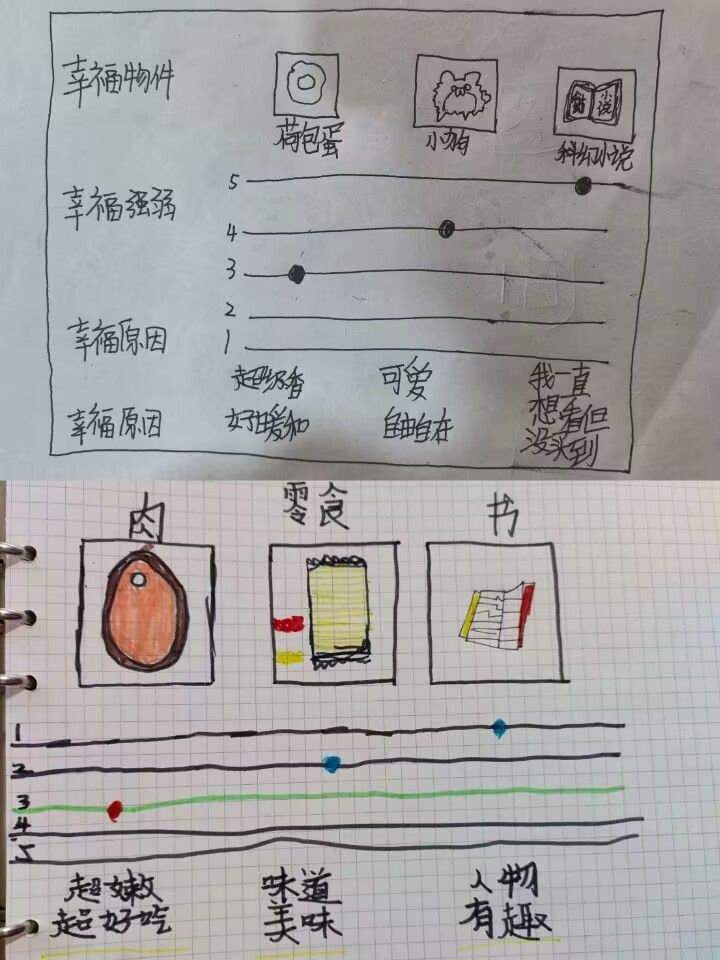 幸福物件
荷包蛋
小狗
科幻小说
小说
幸福强弱
5
4
3
2
1
幸福原因
超级香
可爱
我一直
想看但
没买到
幸福原因
好暖和
自由自在
肉
零食
书
1
2
3
4
5
超嫩
超好吃
味道
美味
人物
有趣